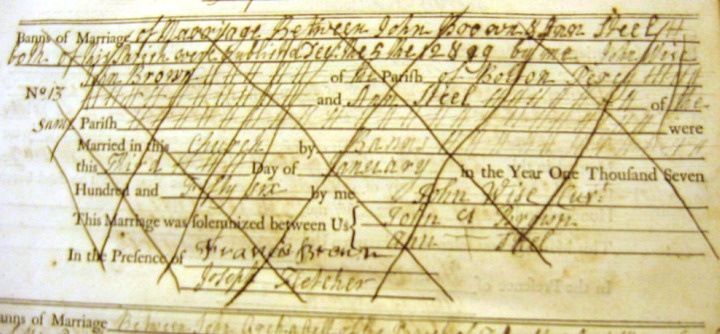 Banns of Marriage of Marriage Between John Brown & Ann Steel
both of this Parish were Publishd Dec: the 5 the 12 & 19 by me John Wise
John Brown of the Parish of Bolton Percy
No 13 and Ann Steel of the
Same Parish were
Married in this Church by Banns
this Third Day of January in the Year One Thousand Seven
Hundred and Fifty six by me John Wise Curt
This Marriage was solemnized between Us { John Brown
Ann Steel
In the Presence of Francis Brown
Joseph Fletcher
anns of Marriage Between John